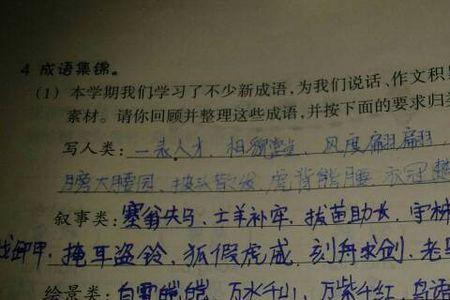 4 成语集锦。
(1) 本学期我们学习了不少新成语,为我们说话、作文积
素材。请你回顾并整理这些成语,并按下面的要求归
写人类:一表人才、相貌堂堂、风度翩翩、
膀大腰圆、披头散发、虎背熊腰、衣冠
叙事类:塞翁失马、亡羊补牢、拔苗助长、守株
卸甲、掩耳盗铃、狐假虎威、刻舟求剑、老马
绘景类:白雪皑皑、万水千山、万紫千红、鸟语